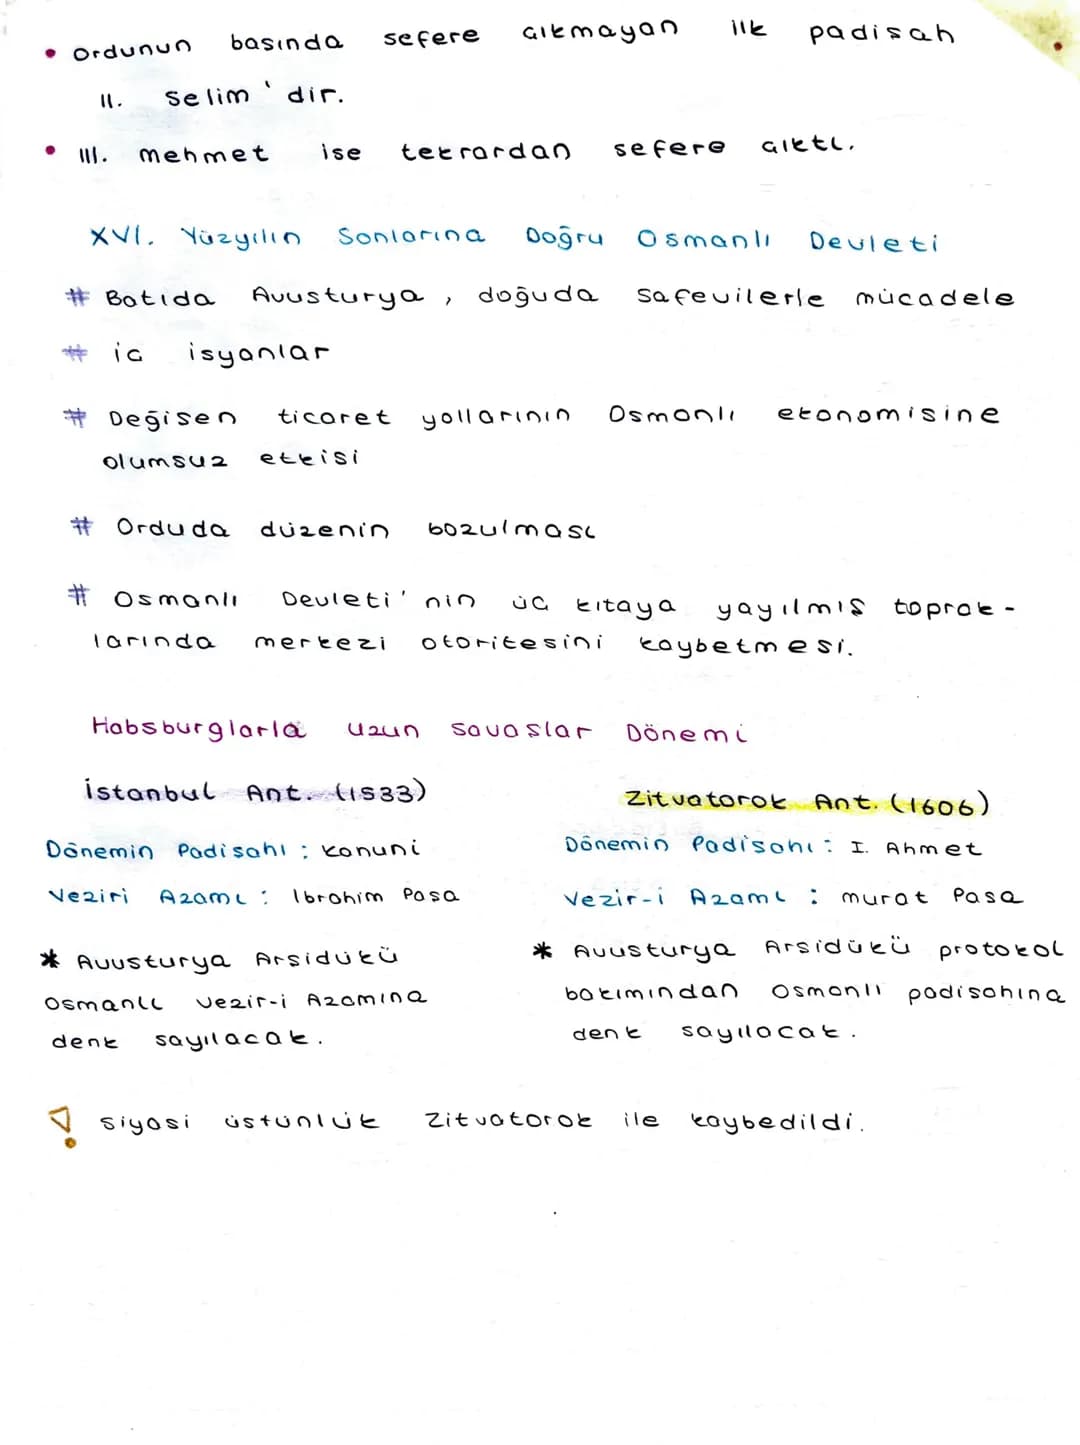 • Ordunun basında sefere cıkmayan ilk padisah
II. Selim' dir.
• III. mehmet ise tekrardan sefere cıktı.
XVI. Yüzyılın Sonlarına Doğru Osmanlı Devleti
# Batıda Avusturya, doğuda safevilerle mücadele
# ic isyanlar
# Değisen ticaret yollarının Osmanlı ekonomisine
olumsuz etkisi
# Orduda düzenin bozulması
# Osmanlı Devleti' nin üc kıtaya yayılmıs toprak-
larında merkezi otoritesini kaybetmesi.
Habsburglarla uzun savaslar Dönemi
İstanbul Ant. (1533)
Dönemin Padisahı : kanuni
Veziri Azamı : Ibrahim Pasa
* Avusturya Arsidükü
Osmanlı vezir-i Azamına
denk sayılacak.
Zitvatorok Ant. (1606)
Dönemin Padisahı : I. Ahmet
Vezir-i Azamı : murat Pasa
* Avusturya Arsidükü protokol
bakımından Osmanlı padisahına
denk sayılacak.
! siyasi üstünlük Zitvatorok ile kaybedildi.